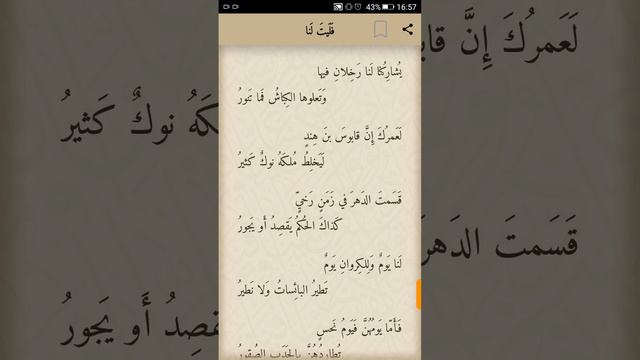 43% 16:57
فَلَيتَ لَنا
يُشارِكُنا لَنا رَخِلانِ فيها
وَتَعلوها الكِباشُ فَما تَنورُ
لَعَمرُكَ إِنَّ قابوسَ بنَ هِندٍ
لَيَخلِطُ مُلكَهُ نوكٌ كَثيرُ
قَسَمتَ الدَهرَ في زَمَنٍ رَخيٍّ
كَذاكَ الحُكمُ يَقصِدُ أَو يَجورُ
لَنا يَومٌ وَلِلكِروانِ يَومٌ
تَطيرُ البائِساتُ وَلا نَطيرُ
فَأَمّا يَومُهُنَّ فَيَومُ نَحسٍ
تُطارِدُهُنَّ بِالحَدَبِ الصُقورُ
لَعَمرُكَ إِنَّ قابو
كَهُ نوكٌ كَثيرُ
قَسَمتَ الدَهرَ
قصِدُ أَو يَجورُ